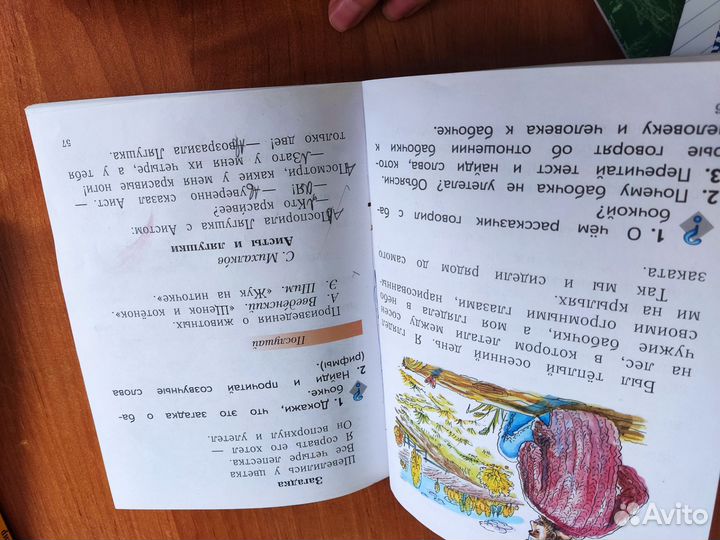 Был тёплый осенний день. Я глядел
на лес, в котором летали между сосен
чужие бабочки, а моя глядела в небо
своими огромными глазами, нарисованны-
ми на крыльях.
Так мы и сидели рядом до самого
заката.
1. О чём рассказчик говорил с ба-
бочкой?
2. Почему бабочка не улетела? Объясни.
3. Перечитай текст и найди слова, кото-
рые говорят об отношении бабочки к
человеку и человека к бабочке.
Загадка
Шевелились у цветка
Все четыре лепестка.
Я сорвать его хотел —
Он вспорхнул и улетел.
1. Докажи, что это загадка о ба-
бочке.
2. Найди и прочитай созвучные слова
(рифмы).
Послушай
Произведения о животных.
А. Введенский. «Щенок и котёнок».
Э. Шим. «Жук на ниточке».
С. Михалков
Аисты и лягушки
Поспорила Лягушка с Аистом:
— Кто краси́вее?
— Я! — уверенно сказал Аист. —
Посмотри, какие у меня красивые ноги!
— Зато у меня их четыре, а у тебя
только две! — возразила Лягушка.
57
Avito